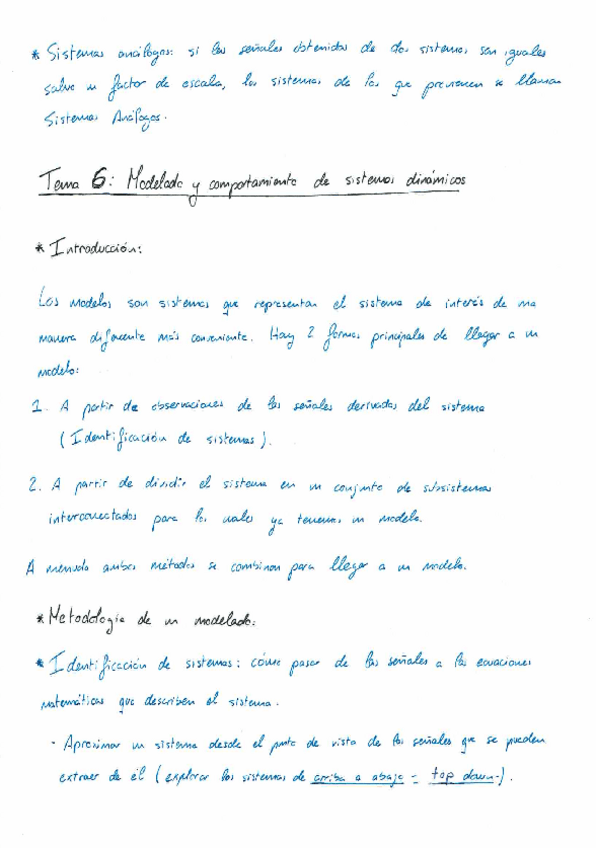 * Sistemas análogos: si las señales obtenidas de dos sistemas son iguales
salvo un factor de escala, los sistemas de los que provienen se llaman
Sistemas Análogos.
Tema 6: Modelado y comportamiento de sistemas dinámicos
* Introducción:
Los modelos son sistemas que representan el sistema de interés de una
manera diferente más conveniente. Hay 2 formas principales de llegar a un
modelo:
1. A partir de observaciones de las señales derivadas del sistema
(Identificación de sistemas).
2. A partir de dividir el sistema en un conjunto de subsistemas
interconectados para los cuales ya tenemos un modelo.
A menudo ambos métodos se combinan para llegar a un modelo.
* Metodología de un modelado:
* Identificación de sistemas: cómo pasar de las señales a las ecuaciones
matemáticas que describen el sistema.
· Aproximar un sistema desde el punto de vista de las señales que se pueden
extraer de él (explorar los sistemas de arriba a abajo - top down-).